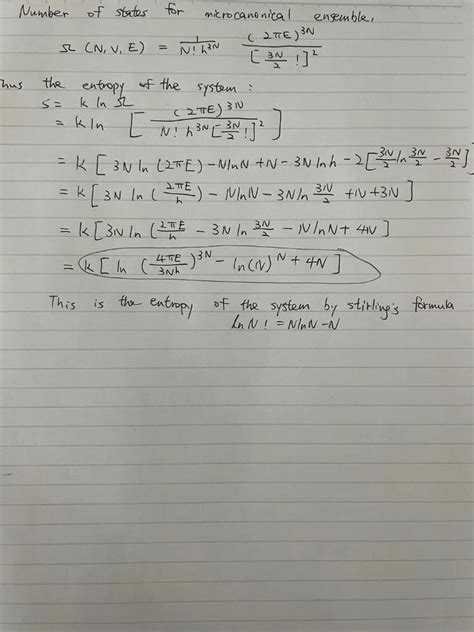 Number of states for microcanonical ensemble,
Ω (N, V, E) = 1/(N! h^3N) (2πE)^3N/[3N/2 !]^2
Thus the entropy of the system :
S = k ln Ω
= k ln [ (2πE)^3N / (N! h^3N [3N/2 !]^2) ]
= k [ 3N ln (2πE) - NlnN + N - 3N ln h - 2[3N/2 ln 3N/2 - 3N/2] ]
= k [ 3N ln (2πE/h) - NlnN - 3N ln 3N/2 + N + 3N ]
= k [ 3N ln (2πE/h - 3N ln 3N/2 - N ln N + 4N ]
= k [ ln (4πE/3Nh)^3N - ln(N)^N + 4N ]
This is the entropy of the system by stirling's formula
ln N ! = N ln N - N